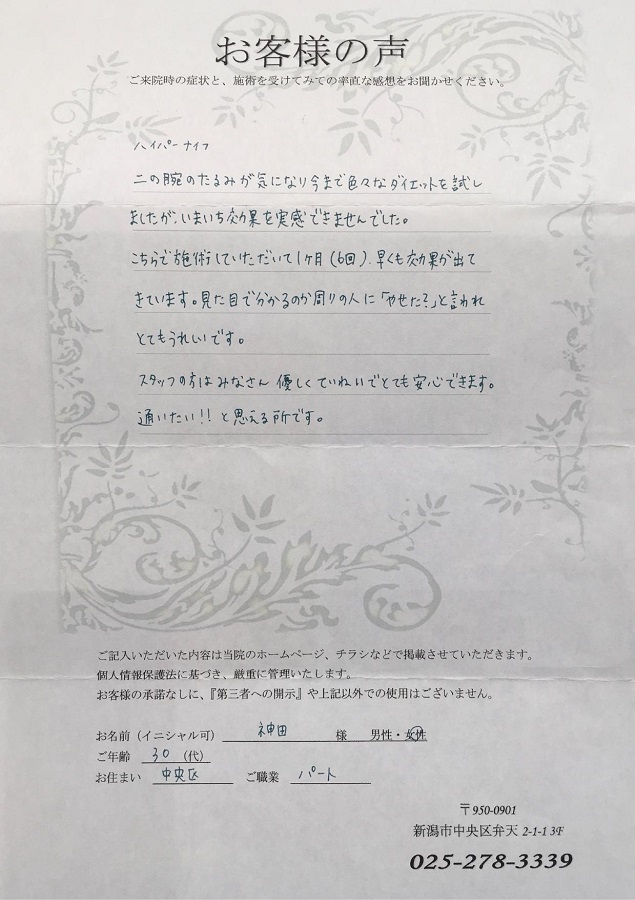 お客様の声
ご来院時の症状と、施術を受けてみての率直な感想をお聞かせください。
ハイパーナイフ
二の腕のたるみが気になり今まで色々なダイエットを試し
ましたが、いまいち効果を実感できませんでした。
こちらで施術していただいて1ヶ月(6回)、早くも効果が出て
きています。見た目で分かるのか周りの人に「やせた?」と言われ
とてもうれしいです。
スタッフの方はみなさん優しくていねいでとても安心できます。
通いたい!!と思える所です。
ご記入いただいた内容は当院のホームページ、チラシなどで掲載させていただきます。
個人情報保護法に基づき、厳重に管理いたします。
お客様の承諾なしに、『第三者への開示』や上記以外での使用はございません。
お名前(イニシャル可) 神田 様 男性・女性
ご年齢 30 (代)
お住まい 中央区 ご職業 パート
〒950-0901
新潟市中央区弁天 2-1-1 3F
025-278-3339